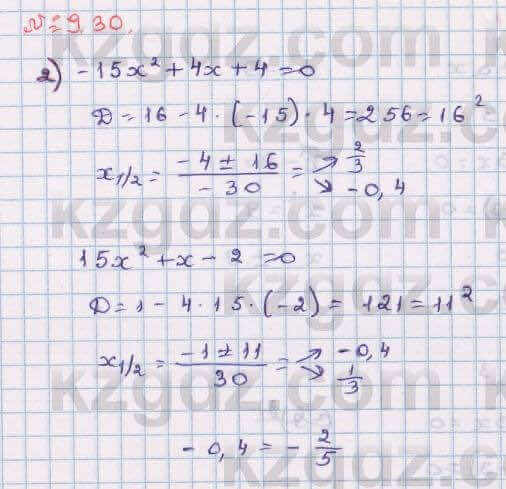 № 9.30.
2) -15x² + 4x + 4 = 0
D = 16 - 4 · (-15) · 4 = 256 = 16²
x₁/₂ = (-4 ± 16)/(-30) = ↗ 2/3 ↘ -0,4
15x² + x - 2 = 0
D = 1 - 4 · 15 · (-2) = 121 = 11²
x₁/₂ = (-1 ± 11)/30 = ↗ -0,4 ↘ 1/3
-0,4 = -2/5
kzgdz.com